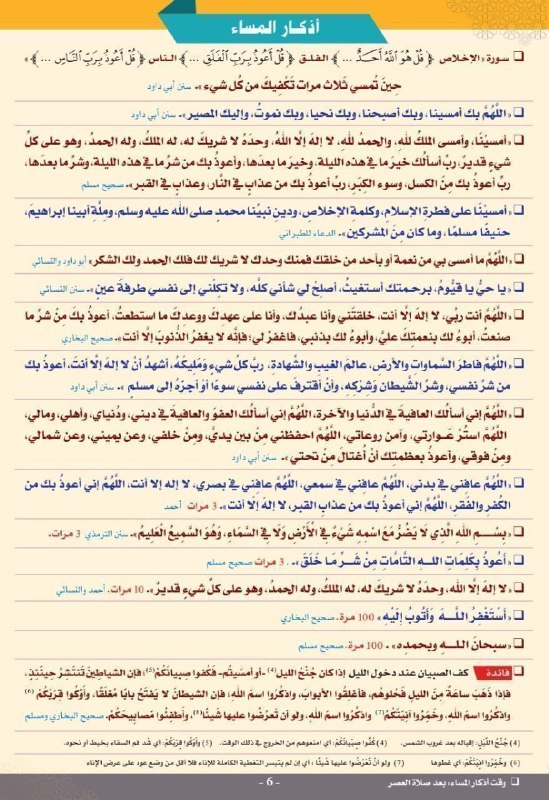 أذكار المساء
سورة «الإخلاص ﴿ قُلْ هُوَ اللَّهُ أَحَدٌ ... ﴾ الفلق ﴿ قُلْ أَعُوذُ بِرَبِّ الْفَلَقِ ... ﴾ الناس ﴿ قُلْ أَعُوذُ بِرَبِّ النَّاسِ ... ﴾»
حينَ تُمسي ثَلاثَ مرات تَكْفِيكَ من كُلِّ شيء». سنن أبي داود
«اللَّهُمَّ بك أمسينا، وبك أصبحنا، وبك نحيا، وبك نموتُ، وإليك المصير». سنن أبي داود
«أمسيْنا، وأمسى الملكُ للهِ، والحمدُ للهِ، لا إلهَ إلَّا اللهُ، وحدَهُ لا شريكَ له، له الملكُ، وله الحمدُ، وهو على كلِّ
شيءٍ قديرٌ، ربِّ أسألُك خيرَ ما في هذه الليلةِ، وخيرَ ما بعدَها، وأعوذُ بك من شرِّ ما في هذه الليلةِ، وشرِّ ما بعدَها،
ربِّ أعوذُ بك من الكسلِ، وسوءِ الكِبَرِ، ربِّ أعوذُ بك من عذابٍ في النَّار، وعذابٍ في القبرِ». صحيح مسلم
«أمسيْنا على فطرةِ الإسلامِ، وكلمةِ الإخلاصِ، ودينِ نبيِّنا محمدٍ صلى الله عليه وسلم، وملَّةِ أبينا إبراهيمَ،
حنيفًا مسلمًا، وما كان من المشركين». الدعاء للطبراني
«اللَّهُمَّ ما أمسى بي من نعمة أو بأحد من خلقك فمنك وحدك لا شريك لك فلك الحمد ولك الشكر» أبو داود والنسائي
«يا حيُّ يا قيُّومُ، برحمتك أستغيثُ، أصلِحْ لي شأني كلَّه، ولا تكِلْني إلى نفسي طرفةَ عينٍ». سنن النسائي
«اللَّهُمَّ أنت ربِّي، لا إلهَ إلَّا أنت، خلقتَني وأنا عبدُك، وأنا على عهدِك ووعدِك ما استطعتُ، أعوذُ بكَ مِنْ شرِّ ما
صنعتُ، أبوءُ لك بنعمتِكَ عليَّ، وأبوءُ لك بذنبي، فاغفرْ لي؛ فإنَّه لا يغفرُ الذُّنوبَ إلَّا أنت». صحيح البخاري
«اللَّهُمَّ فاطرَ السَّماواتِ والأرضِ، عالمَ الغيبِ والشَّهادةِ، ربَّ كلِّ شيءٍ ومَلِيكَهُ، أشهدُ أنْ لا إلهَ إلَّا أنتَ، أعوذُ بك
من شرِّ نفسي، وشرِّ الشَّيطانِ وشِركِهِ، وأنْ أقترفَ على نفسي سوءًا أوْ أجرَّهُ إلى مسلمٍ». سنن أبي داود
«اللَّهُمَّ إني أسألُك العافيةَ في الدُّنيا والآخرةِ، اللَّهُمَّ إني أسألُك العفوَ والعافيةَ في ديني، ودُنياي، وأهلي، ومالي،
اللَّهُمَّ استُرْ عَوراتي، وآمن روعاتي، اللَّهُمَّ احفظني مِنْ بين يديَّ، ومنْ خلفي، وعن يميني، وعن شمالي،
ومن فوقي، وأعوذُ بعظمتِك أنْ أُغتالَ من تحتي». سنن أبي داود
«اللَّهُمَّ عافني في بدني، اللَّهُمَّ عافني في سمعي، اللَّهُمَّ عافني في بصري، لا إله إلا أنت، اللَّهُمَّ إني أعوذُ بك من
الكُفرِ والفَقرِ، اللَّهُمَّ إني أعوذُ بك من عذابِ القبرِ، لا إلهَ إلَّا أنت». 3 مرات أحمد
«بِسْمِ اللهِ الَّذي لَا يَضُرُّ مَعَ اسْمِهِ شَيْءٌ فِي الْأَرْضِ وَلَا فِي السَّمَاءِ، وَهُوَ السَّمِيعُ العَلِيمُ». سنن الترمذي 3 مرات.
«أَعُوذُ بِكَلِمَاتِ اللهِ التَّامَّاتِ مِنْ شَرِّ مَا خَلَقَ». . 3 مرات صحيح مسلم
«لا إلهَ إلَّا اللهُ، وحدَهُ لا شريكَ له، له الملكُ، وله الحمدُ، وهو على كلِّ شيءٍ قديرٌ». 10 مرات. أحمد والنسائي
«أَسْتَغْفِرُ اللَّهَ وَأَتُوبُ إِلَيْهِ» 100 مرة. صحيح البخاري
«سبحانَ اللهِ وبحمدِهِ». 100 مرة. صحيح مسلم
فائدة كف الصبيان عند دخول الليل إذا كان جُنْحُ الليلِ (4) -أو أمسَيتُم- فَكُفوا صِبيانَكُمْ (5)؛ فإن الشياطينَ تَنتَشِرُ حينَئِذٍ،
فإذا ذهَبَ ساعَةٌ مِنَ الليلِ فَحُلوهُم، فأغلِقُوا الأبوابَ، واذكُرُوا اسمَ اللهِ، فإن الشيطانَ لا يَفتَحُ بابًا مُغلَقًا، وأوكُوا قِرَبَكُمْ (6)
واذكُرُوا اسمَ اللهِ، وخَمِّرُوا آنِيَتَكُمْ (7) واذكُرُوا اسمَ اللهِ، ولو أن تَعرُضُوا عليها شَيئًا (8)، وأطفِئُوا مصابِيحَكُمْ. صحيح البخاري ومسلم
(4) جُنْحُ اللَّيْلِ: إقباله بعد غروب الشمس. (5) كُفُّوا صِبْيَانَكُمْ: أي امنعوهم من الخروج في ذلك الوقت. (5) وَأَوْكُوا قِرَبَكُمْ: أي شد فم السقاء بخيط أو نحوه.
(6) وخَمِّرُوا آنِيَتَكُمْ: أي غطوها (7) ولو أنْ تَعْرُضُوا عليها شَيْئًا: أي إن لم يتيسر التغطية الكاملة للإناء فلا أقل من وضع عود على عرض الإناء
وقت أذكار المساء: بعد صلاة العصر
- 6 -